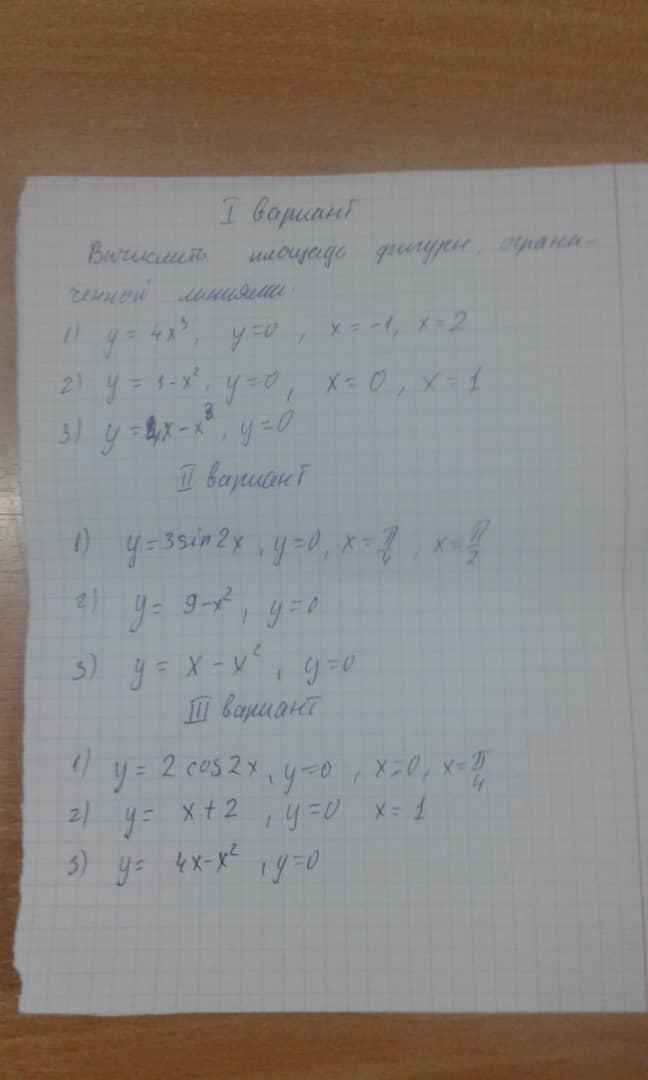 I вариант
Вычислить площадь фигуры, ограни-
ченной линиями.
1) y = 4x³, y=0, x=-1, x=2
2) y = 1-x², y=0, x=0, x=1
3) y = 4x-x³, y=0
II вариант
1) y=3sin2x, y=0, x=π/4, x=π/2
2) y= 9-x², y=0
3) y= x-x², y=0
III вариант
1) y= 2cos2x, y=0, x=0, x=π/4
2) y= x+2, y=0 x=1
3) y= 4x-x², y=0